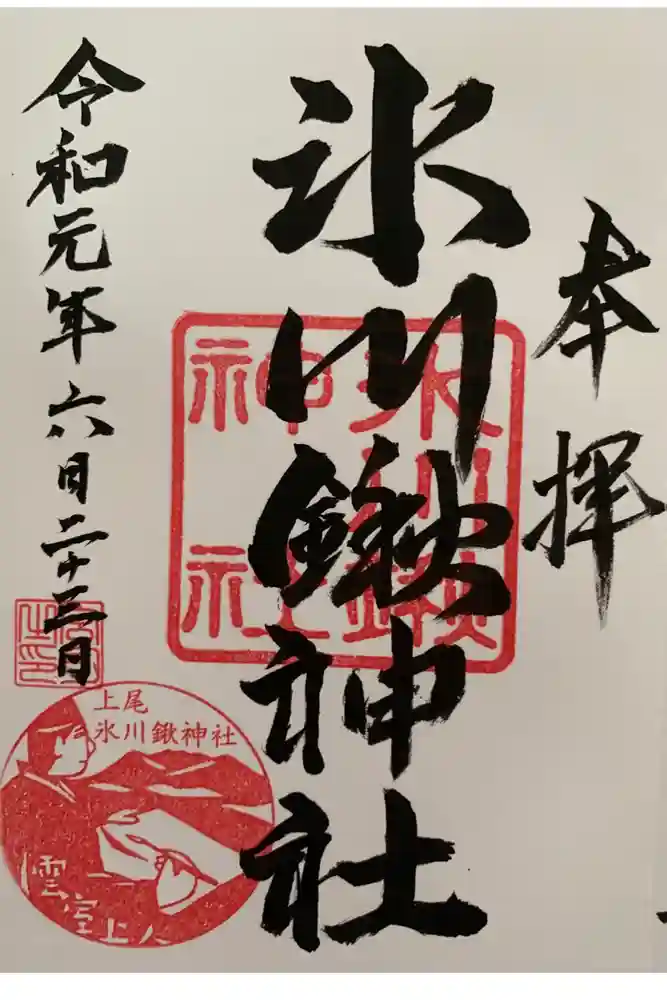 奉拝
氷川鍬神社
令和元年六月二十三日
氷川鍬神社
上尾
氷川鍬神社
雲室上人